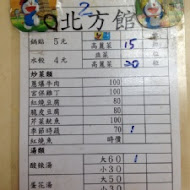 2
北方館
鍋貼 5元 高麗菜 15
韭菜
水餃 4元 高麗菜 20
炒菜類
蔥爆牛肉 100
宮保雞丁 100
紅燒豆腐 80
脆皮豆腐 80
芹菜魷魚 100
季節時蔬 70 1
紅燒魚 時價
湯類
酸辣湯 大60 1
小30
蛋花湯 大50
小30